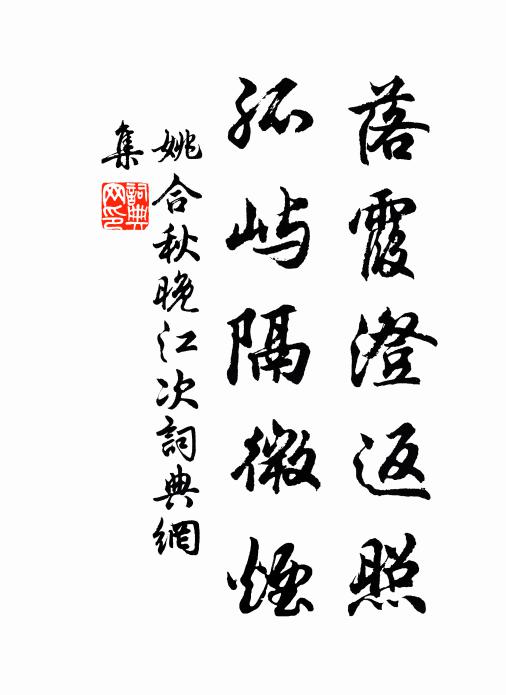 落霞澄返照
孤屿隔微煙
姚合秋晚江次詞典網
集
詞典網印